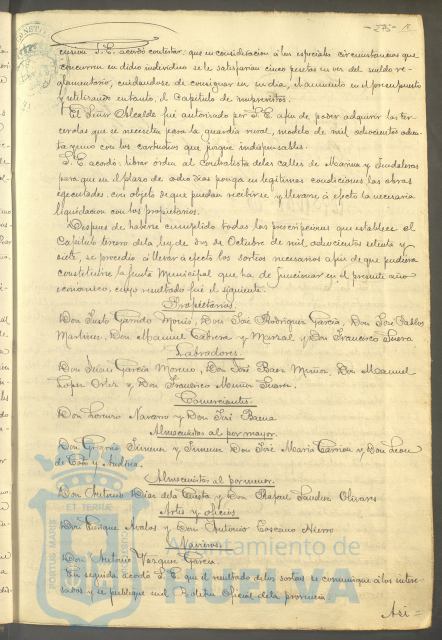 -275- R
cusion S.E. acordó contestar: que en consideracion á las especiales circunstancias que
concurren en dicho individuo se le satisfarian cinco pesetas en vez del sueldo re-
glamentario, cuidandose de consignar en su dia, el aumento en el presupuesto
y utilizando en tanto, el Capitulo de imprevistos.
El Señor Alcalde fué autorizado por S.E. afin de poder adquirir las ter-
cerolas que se necesiten para la guardia rural, modelo de mil ochocientos
y uno con los cartuchos que juzgue indispensables.
S.E. acordó: librar orden al contratista de las calles de Marina y
para que en el plazo de ocho dias ponga en legitimas condiciones las obras
ejecutadas, con objeto de que puedan recibirse y llevarse á efecto la necesaria
liquidacion con los propietarios.
Despues de haberse cumplido todas las prescripciones que establece el
Capitulo tercero de la ley de dos de Octubre de mil ochocientos setenta y
siete, se procedió á llevar á efecto los sorteos necesarios afin de que pudiera
constituirse la Junta Municipal que ha de funcionar en el presente año
economico, cuyo resultado fué el siguiente.
Propietarios.
Don Justo Garrido Mories, Don José Rodriguez Garcia, Don José Pablos
Martinez, Don Manuel Cabrera y Marzal y Don Francisco
Labradores.
Don Juan Garcia Moreno, Don José Baez Muñoz, Don Manuel
Lopez Ortiz y Don Francisco Muñoz Suarez.
Comerciantes.
Don Lorenzo Navarro y Don José Baena
Almacenistas al por mayor.
Don Gregorio Jimenez y Jimenez Don José Maria Carrion y Don
de Cos y
Almacenistas al por menor.
Don Antonio Diaz de la Cuesta y Don Rafael Sanchez Olivares
Artes y oficios.
Don Enrique Avalos y Don Antonio Toscano Hierro
Marinos.
Don Antonio Vazquez Garcia.
En seguida acordó S.E. que el resultado de los sorteos se comunique á los intere-
sados y se publique en el Boletin Oficial de la provincia.
Asi=
PORTUS MARIS
ET TERRAE
CUSTODIA
Ayuntamiento de
HUELVA